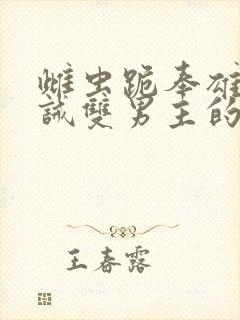 雌虫跪奉雄
誡雙男主的
王春露